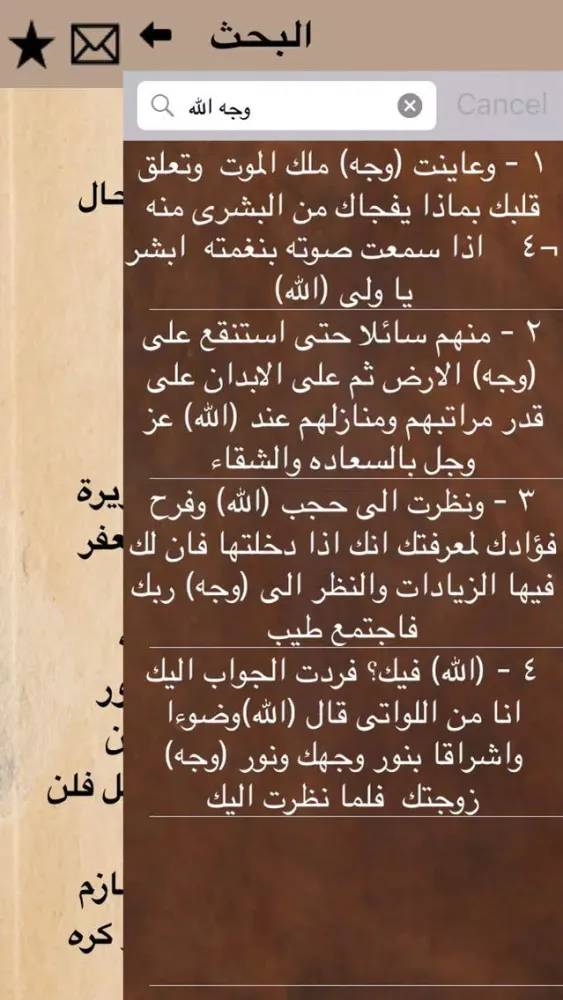 البحث
وجه الله
Cancel
١ - وعاينت (وجه) ملك الموت وتعلق
قلبك بماذا يفجاك من البشرى منه
¬٤ اذا سمعت صوته بنغمته ابشر
يا ولى (الله)
٢ - منهم سائلا حتى استنقع على
(وجه) الارض ثم على الابدان على
قدر مراتبهم ومنازلهم عند (الله) عز
وجل بالسعاده والشقاء
٣ - ونظرت الى حجب (الله) وفرح
فؤادك لمعرفتك انك اذا دخلتها فان لك
فيها الزيادات والنظر الى (وجه) ربك
فاجتمع طيب
٤ - (الله) فيك؟ فردت الجواب اليك
انا من اللواتى قال (الله)وضوءا
واشراقا بنور وجهك ونور (وجه)
زوجتك فلما نظرت اليك
حال
يرة
عفر
ور
ن
ل فلن
ازم
كره